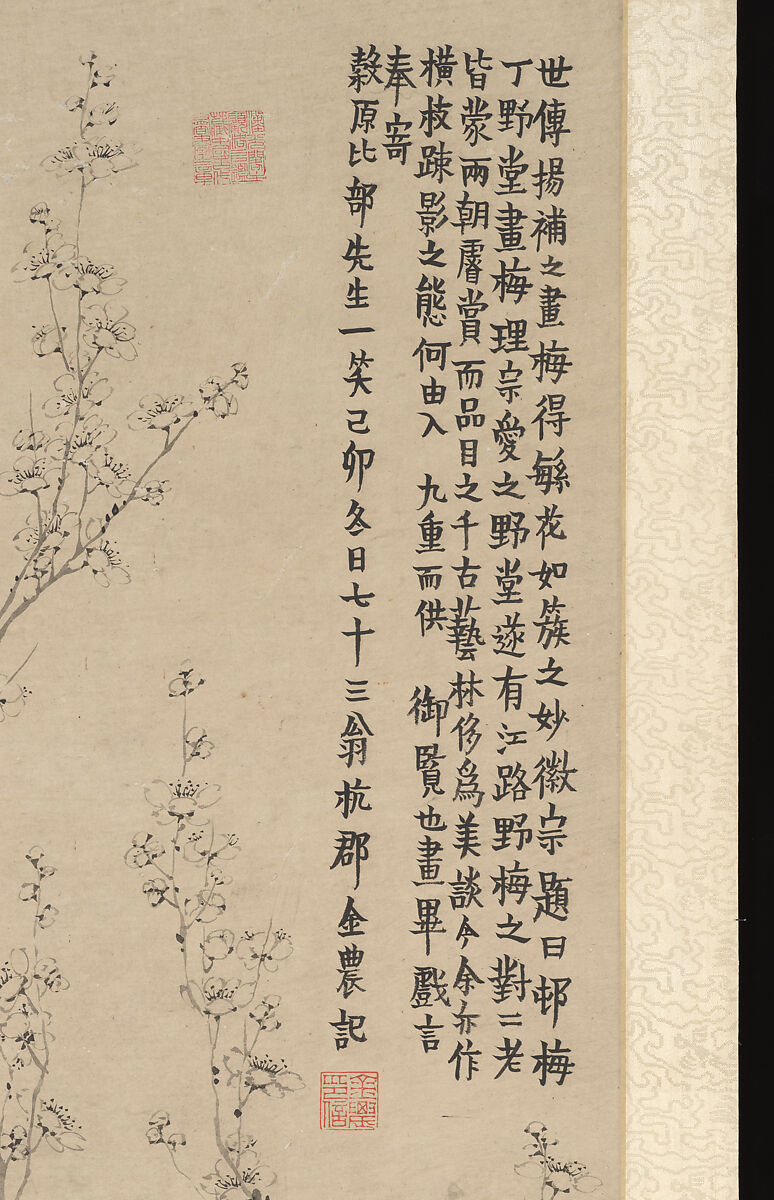 世傳揚補之畫梅得緐花如簇之妙徽宗題曰邨梅
丁野堂畫梅理宗愛之野堂遂有江路野梅之對二老
皆蒙兩朝睿賞而品目之千古藝林侈為美談今余亦作
橫枝疎影之態何由入 九重而供 御覽也畫畢戲言
奉寄
穀原比部先生一笑己卯冬日七十三翁杭郡金農記
金農
印信